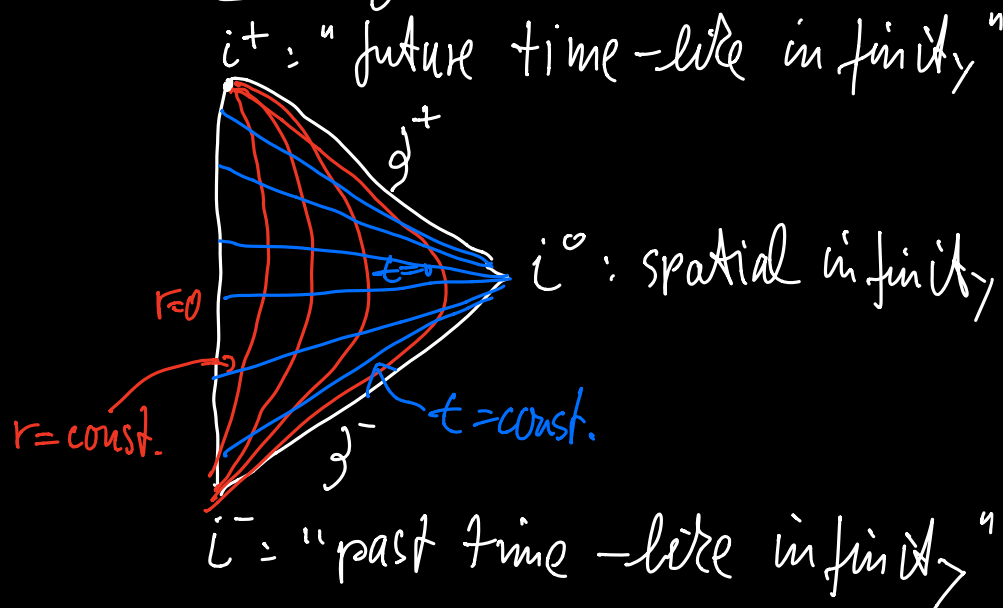 i⁺: "future time-like infinity"
𝓘⁺
t=0
i⁰: spatial infinity
r=0
t=const.
r=const.
𝓘⁻
i⁻: "past time-like infinity"